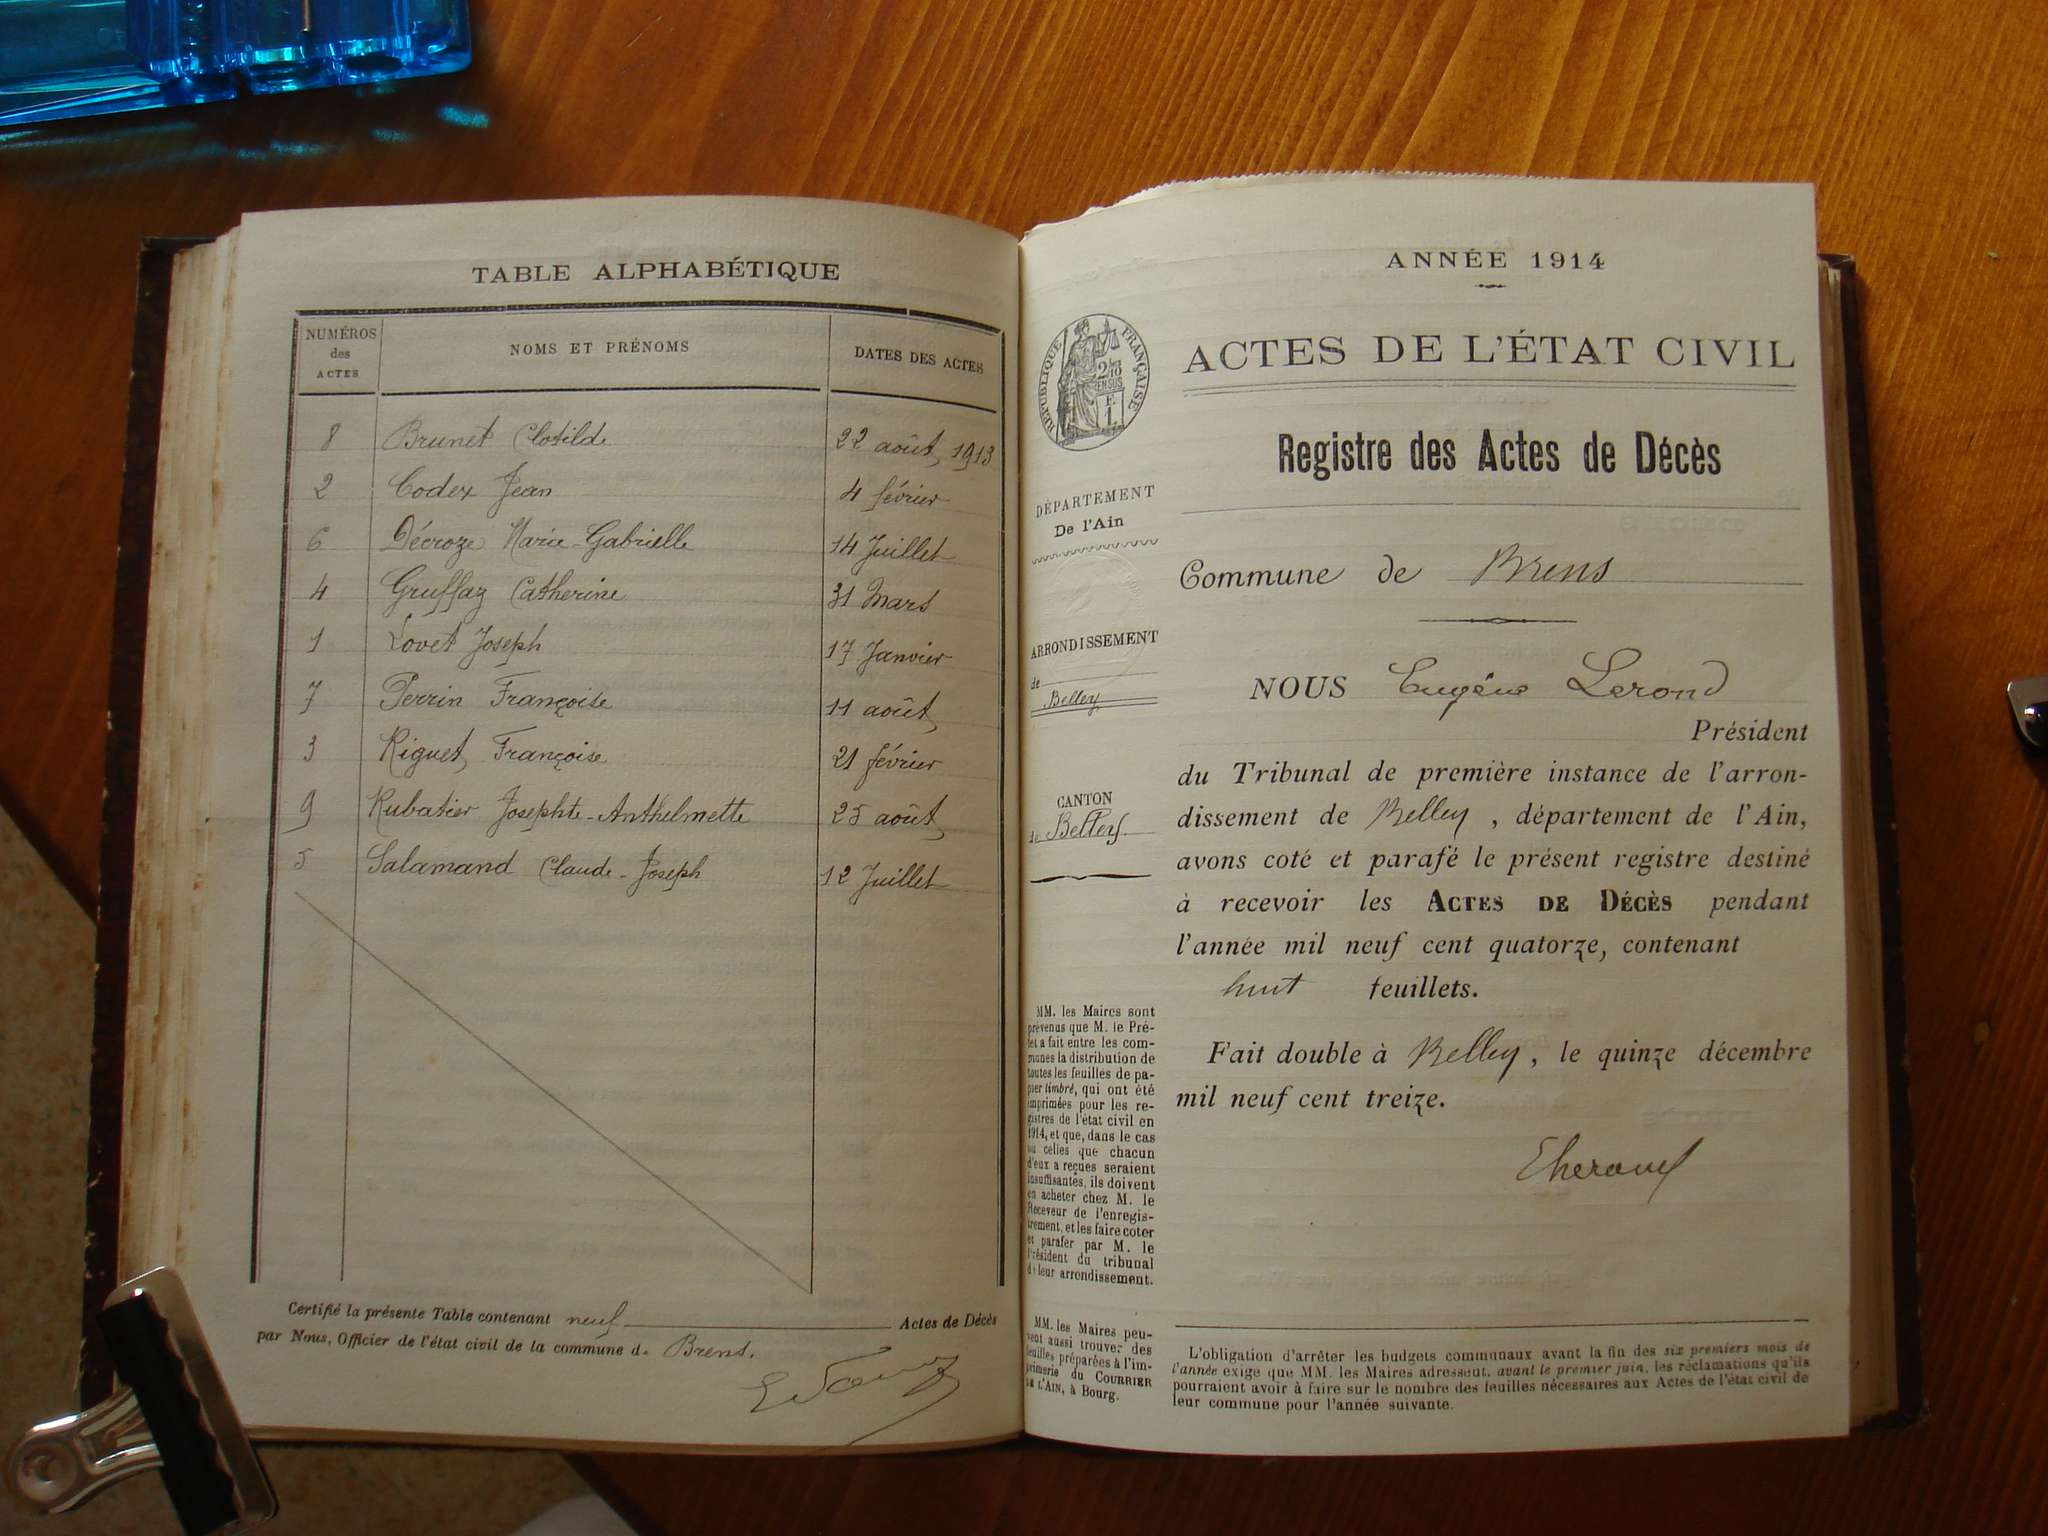 TABLE ALPHABÉTIQUE
NUMÉROS des ACTES
NOMS ET PRÉNOMS
DATES DES ACTES
8 Brunet Clotilde 22 août, 1913
2 Codex Jean 4 février
6 Décroze Marie-Gabrielle 14 Juillet
4 Gruffaz Catherine 31 Mars
1 Lovet Joseph 17 Janvier
7 Perrin Françoise 11 août,
3 Riguet, Françoise 21 février
9 Rubatier Josephte-Anthelmette 25 août,
5 Salamand Claude-Joseph 12 Juillet
Certifié la présente Table contenant neuf Actes de Décès
par Nous, Officier de l'état civil de la commune de Brens.
ANNÉE 1914
RÉPUBLIQUE FRANÇAISE
ACTES DE L'ÉTAT CIVIL
Registre des Actes de Décès
DÉPARTEMENT
De l'Ain
Commune de Brens
ARRONDISSEMENT
de
Belley
CANTON
de Belley
NOUS Eugène Lerond
Président
du Tribunal de première instance de l'arron-
dissement de Belley, département de l'Ain,
avons coté et parafé le présent registre destiné
à recevoir les ACTES DE DÉCÈS pendant
l'année mil neuf cent quatorze, contenant
huit feuillets.
Fait double à Belley, le quinze décembre
mil neuf cent treize.
MM. les Maires sont
prévenus que M. le Pré-
fet a fait entre les com-
munes la distribution de
toutes les feuilles de pa-
pier timbré, qui ont été
imprimées pour les re-
gistres de l'état civil en
1914, et que, dans le cas
où celles que chacun
d'eux a reçues seraient
insuffisantes, ils doivent
en acheter chez M. le
Receveur de l'enregis-
trement, et les faire coter
et parafer par M. le
Président du tribunal
de leur arrondissement.
MM. les Maires peu-
vent aussi trouver des
feuilles préparées à l'im-
primerie du COURRIER
DE L'AIN, à Bourg.
L'obligation d'arrêter les budgets communaux avant la fin des six premiers mois de
l'année exige que MM. les Maires adressent, avant le premier juin, les réclamations qu'ils
pourraient avoir à faire sur le nombre des feuilles nécessaires aux Actes de l'état civil de
leur commune pour l'année suivante.